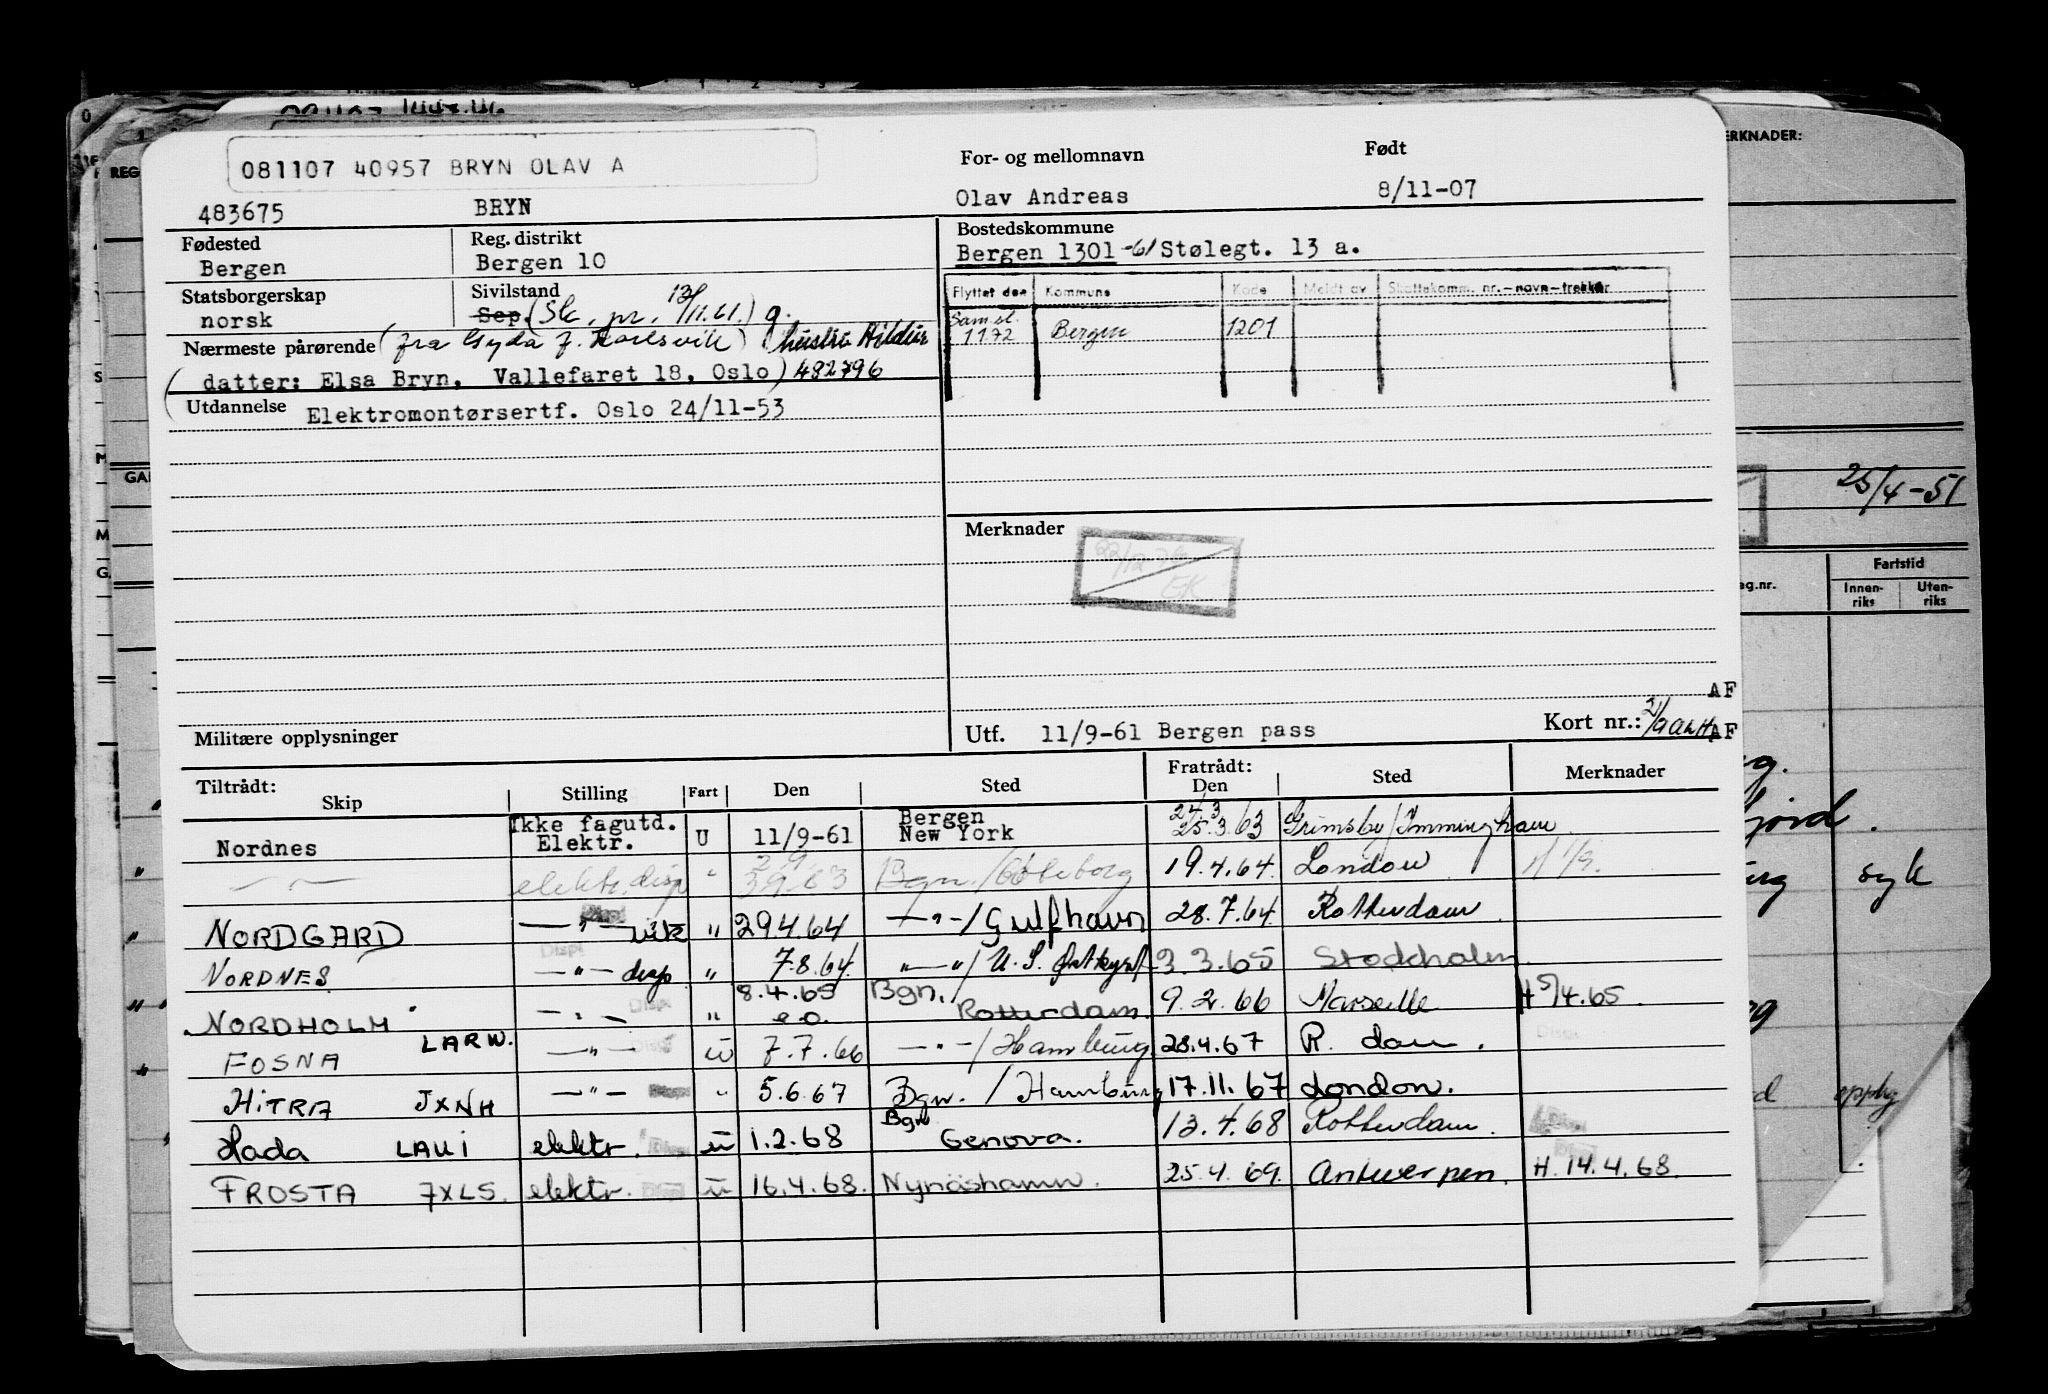 081107 40957 BRYN OLAV A
For- og mellomnavn
Født
483675 BRYN
Olav Andreas
8/11-07
Fødested
Bergen
Reg. distrikt
Bergen 10
Bostedskommune
Bergen 1301 -61 Stølegt. 13 a.
Statsborgerskap
norsk
Sivilstand
Sep. (Sk. pr. 13/11.61.) g.
Flyttet den Kommune Kode Meldt av Skattekomm. nr.-navn-trekker
Saml. 1172 Bergen 1201
Nærmeste pårørende (fra Gyda f. Karlsvik) (hustru Hildur
(datter: Elsa Bryn, Vallefaret 18, Oslo) 482796
Utdannelse Elektromontørsertf. Oslo 24/11-53
Merknader
22/12 76
EK
Militære opplysninger
Utf. 11/9-61 Bergen pass
Kort nr.:
AF
AF
Tiltrådt:
Skip Stilling Fart Den Sted
Fratrådt:
Den Sted Merknader
Nordnes Ikke fagutd. Elektr. U 11/9-61 Bergen New York 24/3 25.3.63 Grimsby/Immingham
— " — elektr. disp " 2/9 3.9.63 Bgn./Gøteborg 19.4.64. London
NORDGARD — " — vik " 29.4.64 — " —/Gulfhavn 28.7.64. Rotterdam.
NORDNES — " — disp " 7.8.64. " — "/U.S. østkyst 3.3.65 Stockholm.
NORDHOLM — " — Disp. " 8.4.65 e.o. Bgn./Rotterdam. 9.2.66 Marseille H 5/4.65.
FOSNA LARW. — " — Disp. ü 7.7.66 — " —/Hamburg 28.4.67 R. dam.
HITRA JXNH — " — " 5.6.67 Bgn./Hamburg 17.11.67 London.
Hada LAUI elektr. ü 1.2.68 Bgn. Genova. 13.4.68 Rotterdam.
FROSTA JXLS. elektr. ü 16.4.68. Nynäshamn. 25.4.69. Antwerpen. H. 14.4.68.
REG
GAR
MERKNADER:
25/4-51
Fartstid
Innenriks Utenriks
eg.nr.
syk